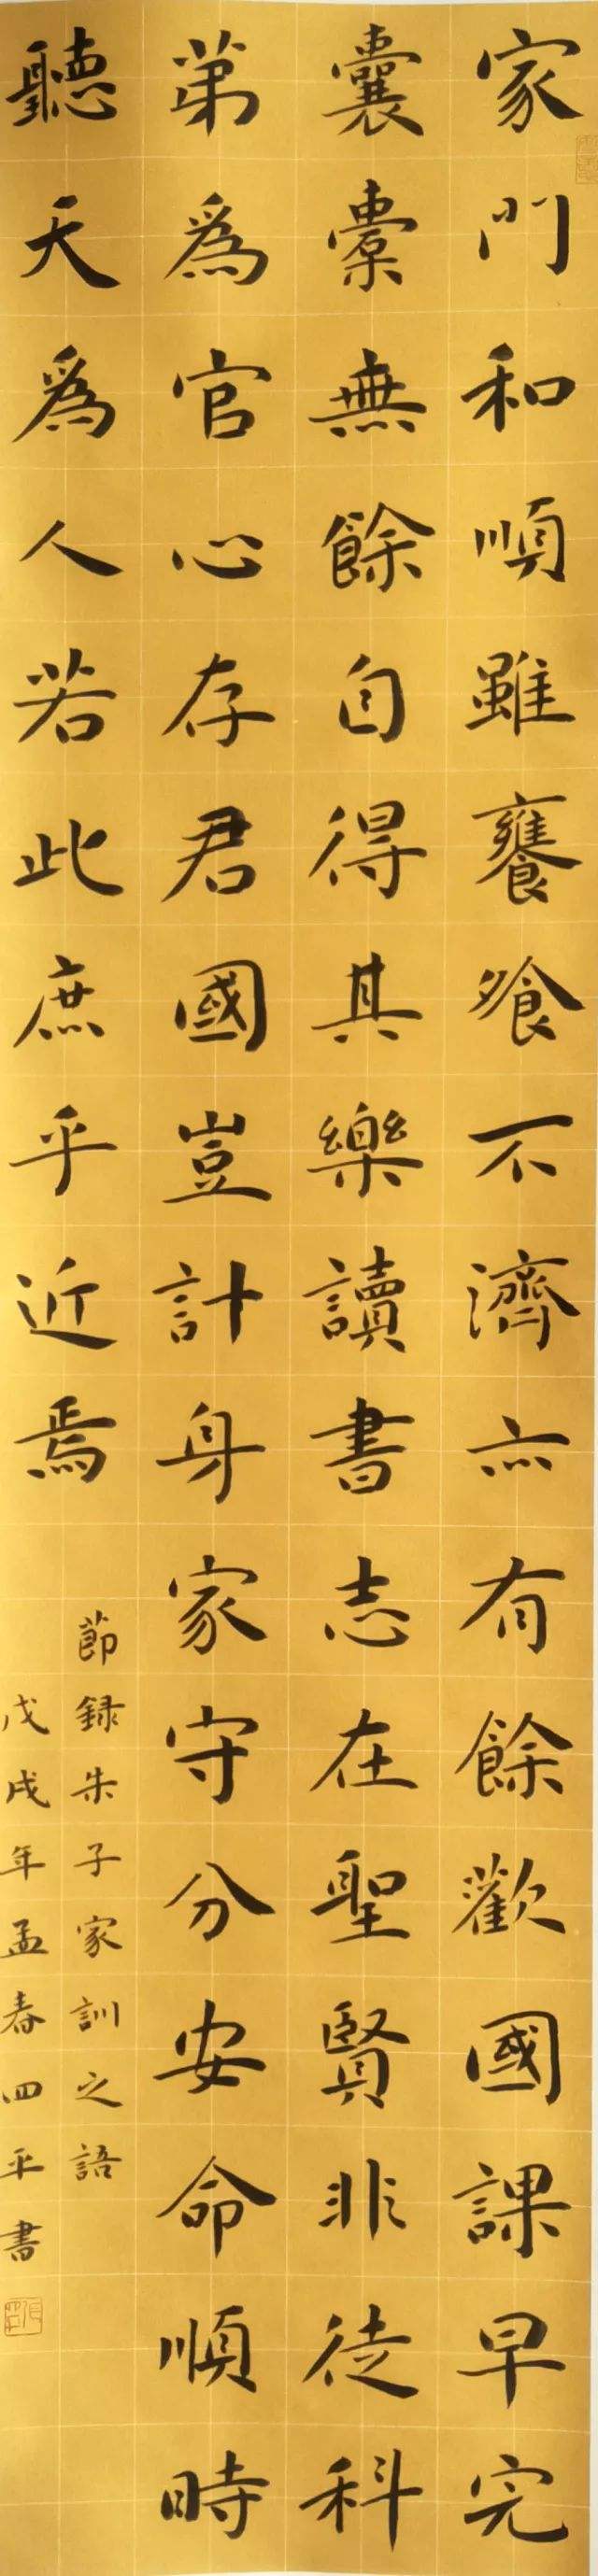 家門和順雖饔飧不濟亦有餘歡國課早完
囊橐無餘自得其樂讀書志在聖賢非徒科
苐為官心存君國豈計身家守分安命順時
聽天爲人若此庶乎近焉
節録朱子家訓之語
戊戌年孟春四平書